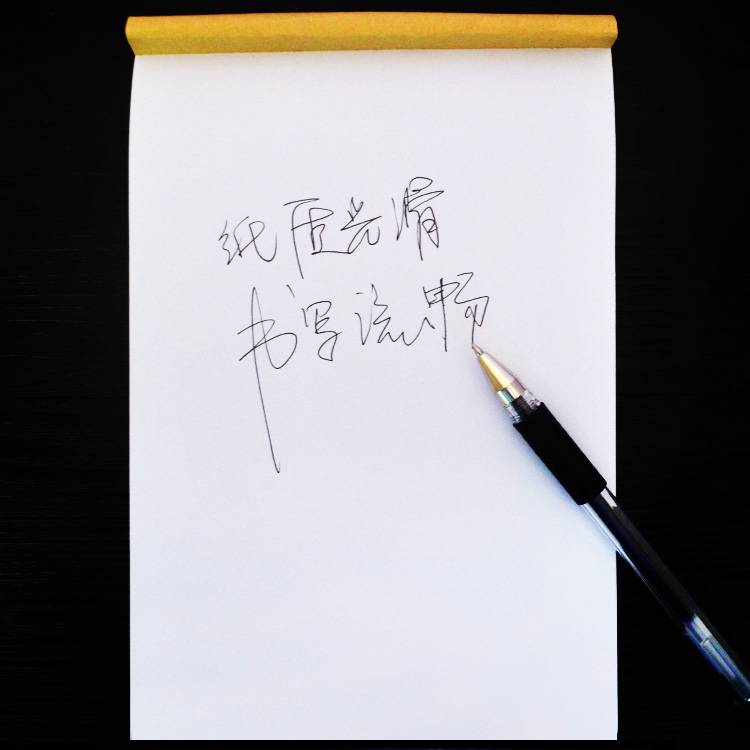 纸质光滑
书写流畅